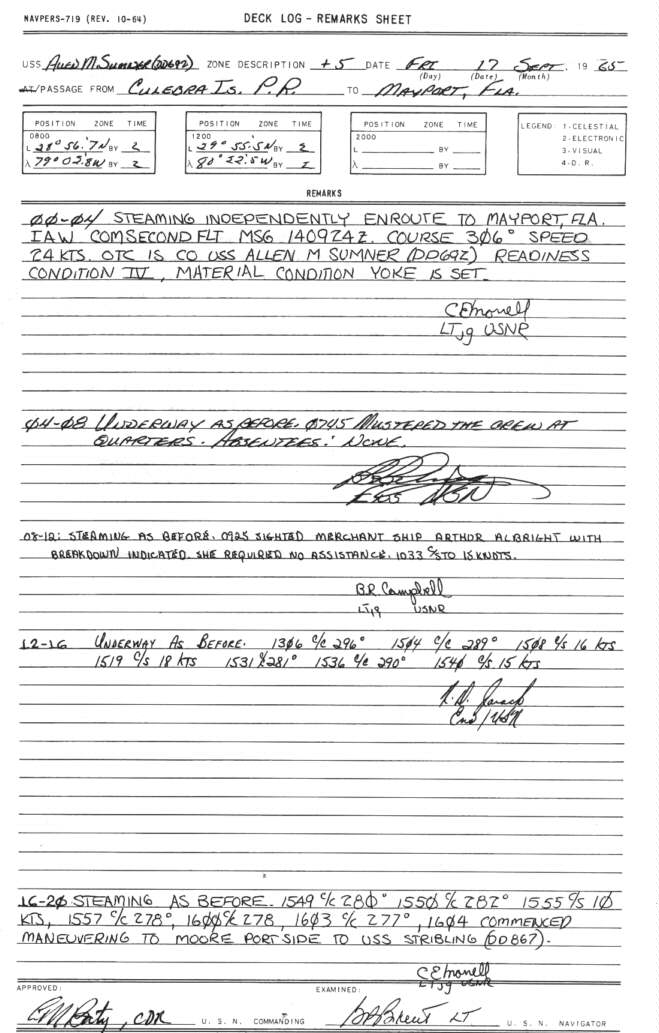 NAVPERS-719 (REV. 10-64)
DECK LOG - REMARKS SHEET
USS ALLEN M. SUMNER (DD692) ZONE DESCRIPTION +5 DATE FRI 17 SEPT. 19 65
(Day) (Date) (Month)
AT/PASSAGE FROM CULEBRA IS. P.R. TO MAYPORT, FLA.
POSITION ZONE TIME
0800
L 28° 56.7N BY 2
λ 79° 02.8W BY 2
POSITION ZONE TIME
1200
L 29° 55.5N BY 2
λ 80° 22.5W BY 2
POSITION ZONE TIME
2000
L BY
λ BY
LEGEND: 1-CELESTIAL
2-ELECTRONIC
3-VISUAL
4-D. R.
REMARKS
00-04 STEAMING INDEPENDENTLY ENROUTE TO MAYPORT, FLA.
IAW COMSECONDFLT MSG 140924Z. COURSE 306° SPEED
24 KTS. OTC IS CO USS ALLEN M SUMNER (DD692) READINESS
CONDITION IV, MATERIAL CONDITION YOKE IS SET.
C E Monell
LTjg USNR
04-08 UNDERWAY AS BEFORE. 0745 MUSTERED THE CREW AT
QUARTERS. ABSENTEES: NONE.
USN
08-12: STEAMING AS BEFORE. 0925 SIGHTED MERCHANT SHIP ARTHOR ALBRIGHT WITH
BREAKDOWN INDICATED. SHE REQUIRED NO ASSISTANCE. 1033 C/S TO 15 KNOTS.
B.R. Campbell
LTjg USNR
12-16 UNDERWAY AS BEFORE. 1306 C/C 296° 1504 C/C 289° 1508 C/S 16 KTS
1519 C/S 18 KTS 1531 C/C 281° 1536 C/C 290° 1540 C/S 15 KTS
Ens USN
16-20 STEAMING AS BEFORE. 1549 C/C 280° 1550 C/C 282° 1555 C/S 10
KTS, 1557 C/C 278°, 1600 C/C 278, 1603 C/C 277°, 1604 COMMENCED
MANEUVERING TO MOORE PORT SIDE TO USS STRIBLING (DD867).
C E Monell
LTjg USNR
APPROVED:
EXAMINED:
CDR U. S. N. COMMANDING
LT U. S. N. NAVIGATOR